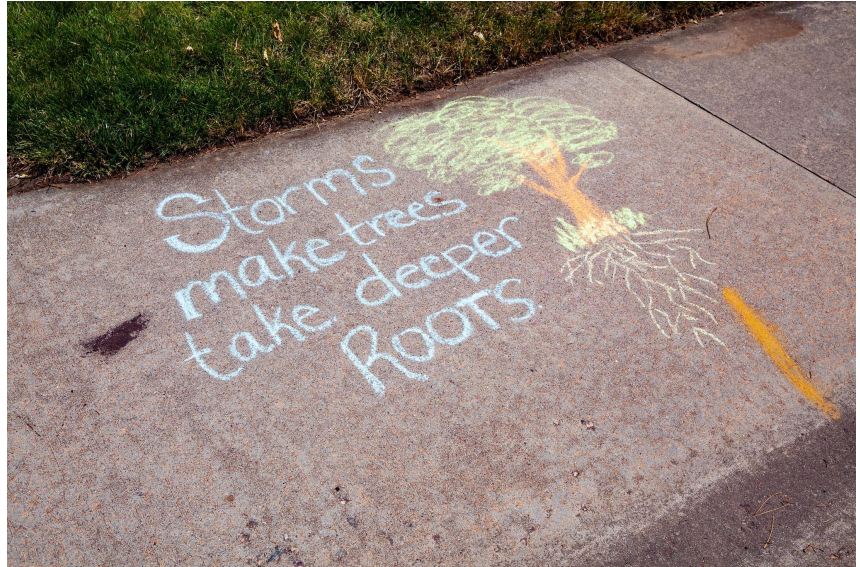 Storms
make trees
take deeper
ROOTS.